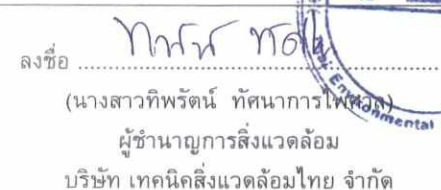 ลงชื่อ
(นางสาวทิพรัตน์ ทัศนาการไพศาล)
ผู้ชำนาญการสิ่งแวดล้อม
บริษัท เทคนิคสิ่งแวดล้อมไทย จำกัด
Environmental